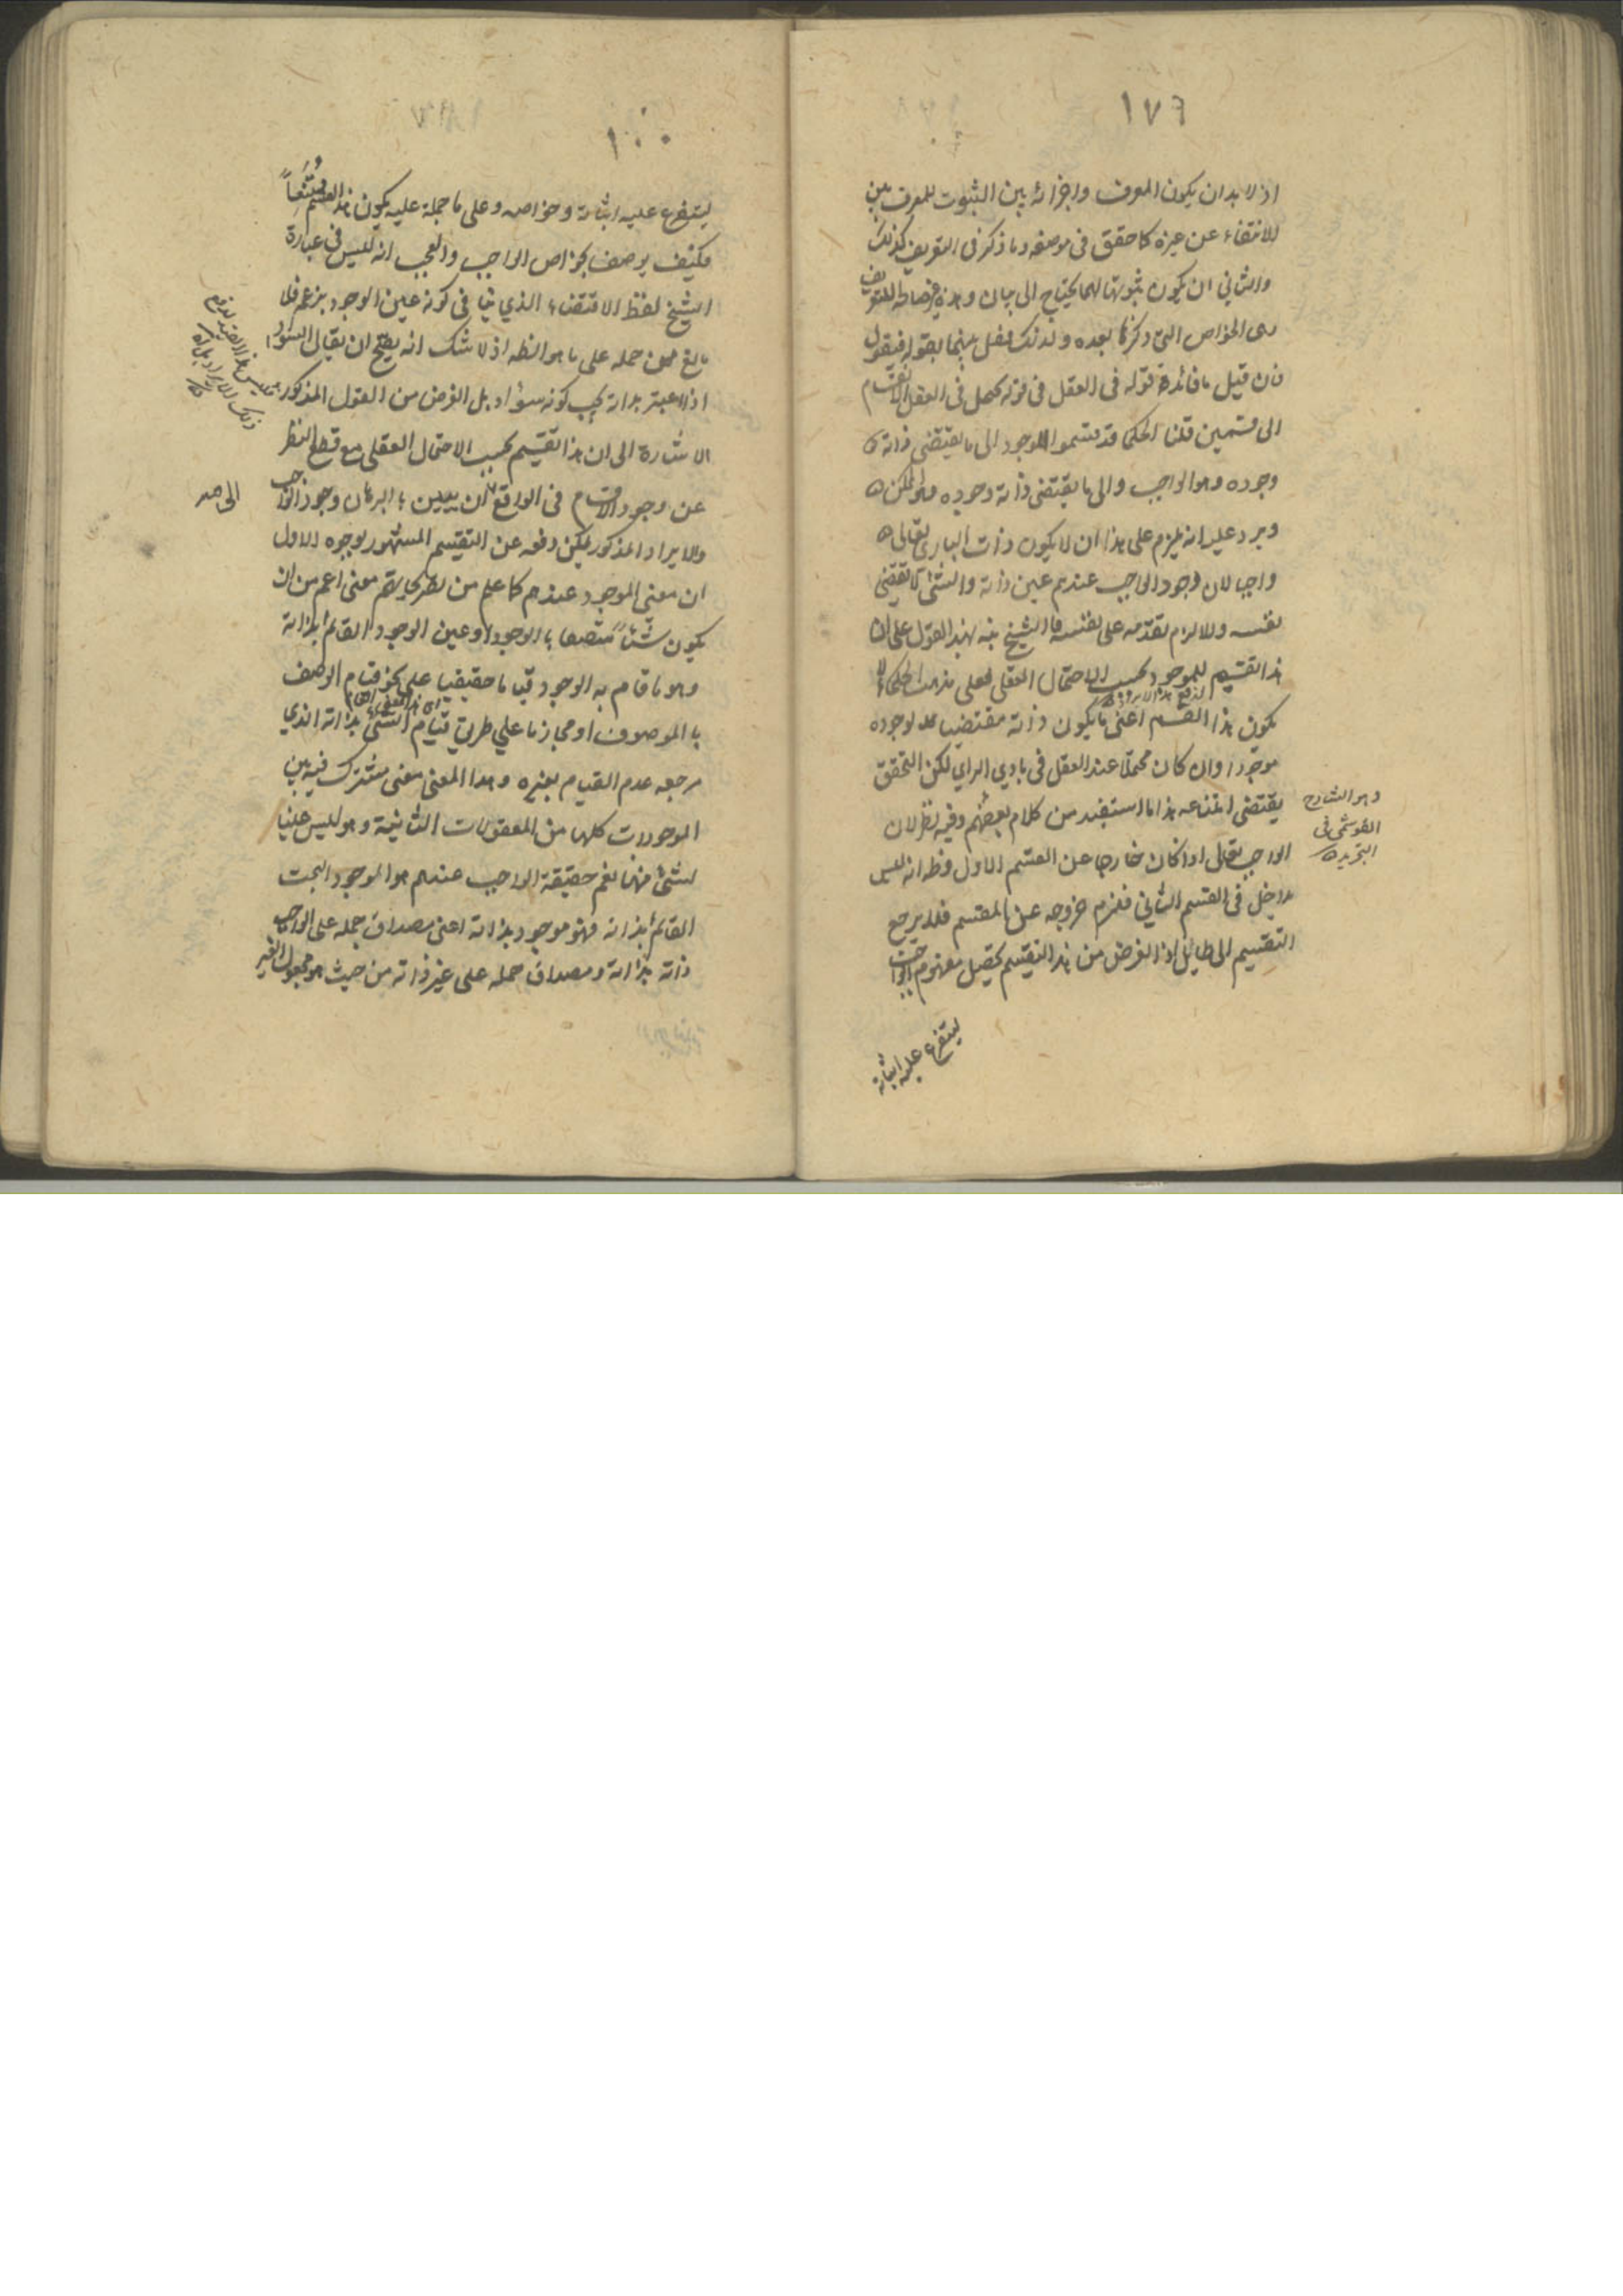 ١٧٦
اذ لا بد ان يكون المعرف واجزائه بين الثبوت للمعرف بين
الانتفاء عن غيره كما حقق في موضعه وما ذكر في التعريف كذلك
والثاني ان يكون ثبوتها لها يحتاج الى بيان وهذه
هي الخواص التي ذكرها بعده ولذلك فصل بينهما بقوله فنقول
فان قيل ما فائدة قوله في العقل في قوله يحصل في العقل الانقسام
الى قسمين قلنا الحكما قد قسموا الموجود الى ما يقتضي ذاته
وجوده وهو الواجب والى ما لا يقتضي ذاته وجوده وهو الممكن
ويرد عليه انه يلزم على هذا ان لا يكون ذات الباري تعالى
واجبا لان وجود الواجب عندهم عين ذاته والشئ لا يقتضي
نفسه والا لزم تقدمه على نفسه فالشيخ نبه بهذا القول على ان
هذا تقسيم للموجود بحسب الاحتمال العقلي فعلى مذهب الحكماء لا
يكون هذا القسم اعني ما يكون ذاته مقتضيا لوجوده
موجودا وان كان محتملا عند العقل في بادي الراي لكن التحقق
يقتضي امتناعه هذا ما استفيد من كلام بعضهم وفيه نظر لان
وهو الشارح
القوشجي في
التجريد
الواجب تعالى اذا كان خارجا عن القسم الاول وظ انه ليس
بداخل في القسم الثاني فلزم خروجه عن المقسم فلا يرجع
التقسيم الى طايل اذ الغرض من هذا التقسيم تحصيل مفهوم الواجب
ليتفرع عليه اثباته
١٠٠
ليتفرع عليه اثباته وخواصه وعلى ما حمله عليه يكون هذا القسم ممتنعاً
فكيف يوصف بخواص الواجب والعجب انه ليس في عبارة
الشيخ لفظ الاقتضاء الذي ينافي كونه عين الوجود بزعمه فلا
مانع من حمله على ما هو الظه اذ لا شك انه يصح ان يقال السواد
اذا اعتبر بذاته يجب كونه سوادا بل الغرض من القول المذكور
الاشارة الى ان هذا تقسيم بحسب الاحتمال العقلي مع قطع النظر
عن وجود الاقسام في الواقع لان يبين بالبرهان وجود الواجب
والايراد المذكور يمكن دفعه عن التقسيم المشهور بوجوه الاول
ان معنى الموجود عندهم كما علم من تصريحاتهم معنى اعم من ان
يكون شيئاً متصفا بالوجود او عين الوجود القائم بذاته
وهو ما قام به الوجود قياما حقيقيا على نحو قيام الوصف
بالموصوف او مجازيا على طريق قيام الشئ بذاته الذي
مرجعه عدم القيام بغيره وهذا المعنى معنى مشترك فيه بين
الموجودات كلها من المعقولات الثانية وهو ليس عينيا
لشئ منها نعم حقيقة الواجب عندهم هو الموجود البحت
القائم بذاته فهو موجود بذاته اعني مصداق حمله على الواجب
ذاته بذاته ومصداق حمله على غيره ذاته من حيث هو مجعول الغير